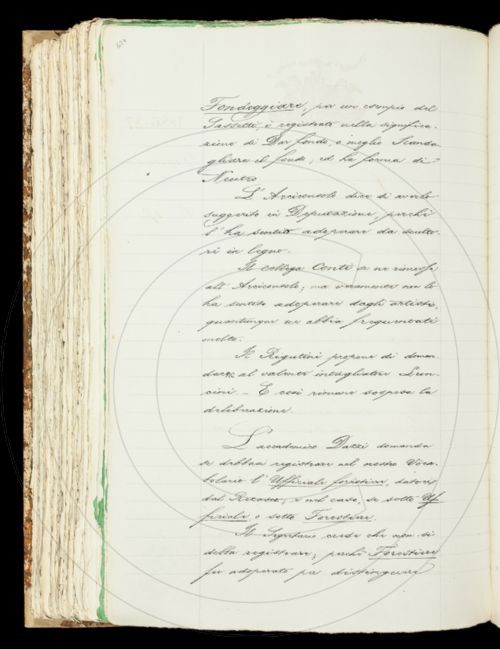 Fondeggiare, per un esempio del
Sassetti, è registrato nella significa-
zione di Dar fondo, o meglio Scanda
gliare il fondo, ed ha forma di
Neutro.
L'Arciconsolo dice di averlo
suggerito in Deputazione, perchè
l'ha sentito adoperare da sculto-
ri in legno.
Il collega Conti se ne rimette
all'Arciconsolo; ma veramente non lo
ha sentito adoperare dagli artisti,
quantunque ne abbia frequentati
molti.
Il Rigutini propone di doman-
darne al valente intagliatore
E così rimane sospesa la
deliberazione.
L'accademico Dazzi domanda
se debbasi registrare nel nostro Voca-
bolario l'Ufficiale forestiere,
dal e nel caso, se sotto Uf
ficiale o sotto Forestiere.
Il Segretario crede che non si
debba registrare; perchè Forestiere
fu adoperato per distinguere